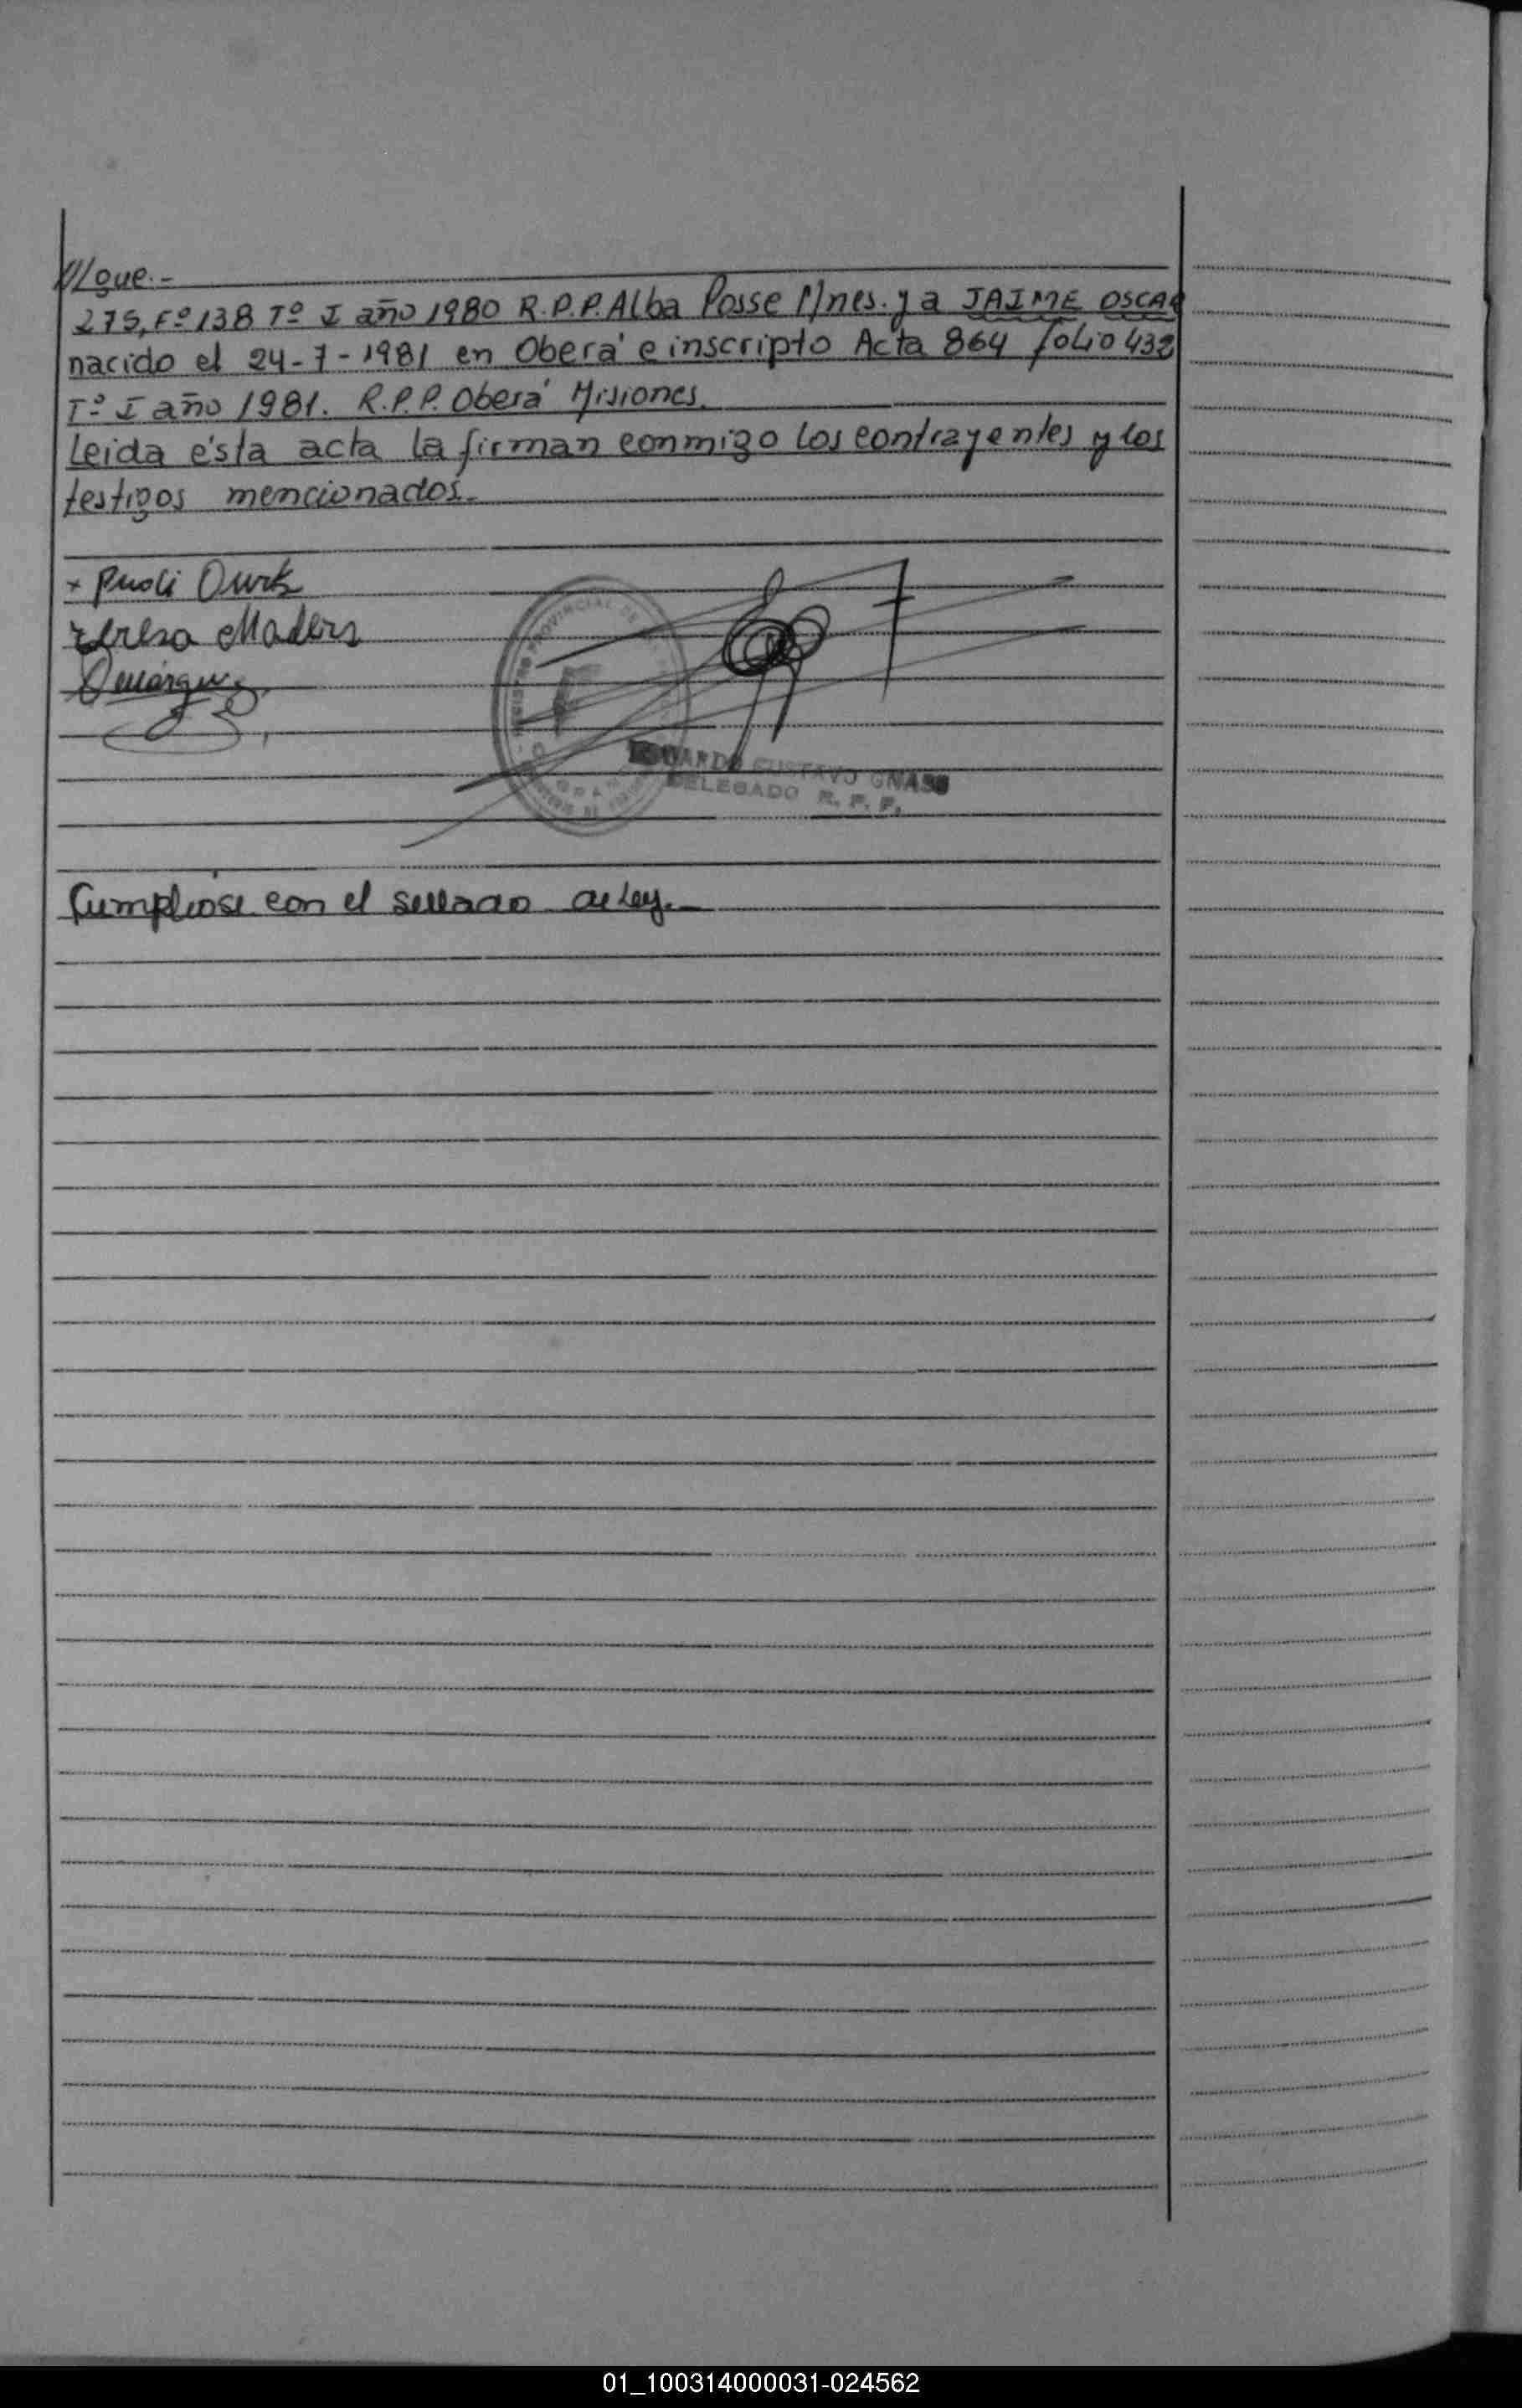 ///gue.-
275, Fº 138 Tº I año 1980 R.P.P. Alba Posse M/nes. y a JAIME OSCAR
nacido el 24-7-1981 en Oberá e inscripto Acta 864 folio 432
Tº I año 1981. R.P.P. Oberá Misiones.
Leida ésta acta la firman conmigo los contrayentes y los
testigos mencionados.-
teresa Maders
REGISTRO PROVINCIAL DE
EDUARDO GUSTAVO GNASS
DELEGADO R. P. P.
Cumpliose con el sellado de Ley.-
01_100314000031-024562